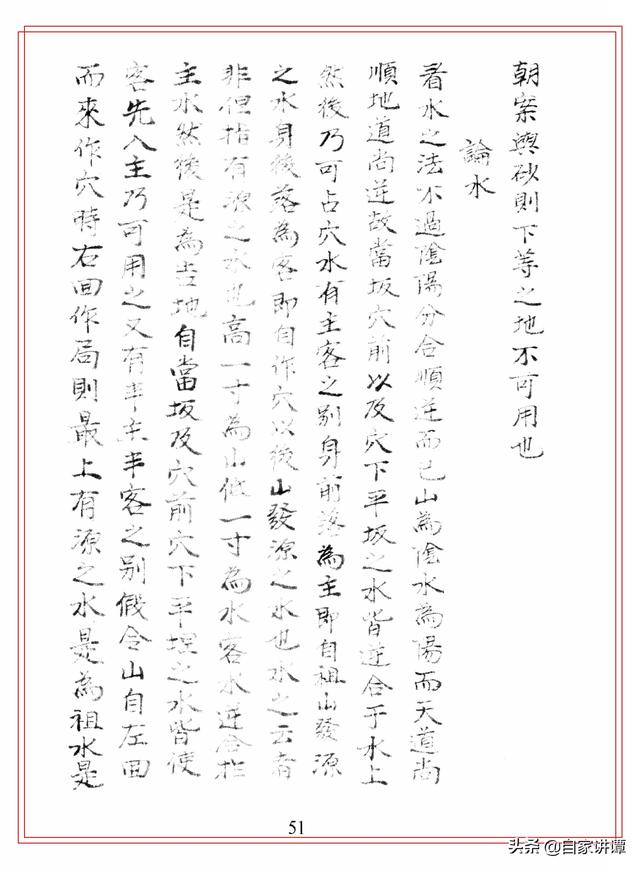 朝案與砂則下等之地不可用也
論水
看水之法不過陰陽分合順逆而已山為陰水為陽而天道尚
順地道尚逆故當坂穴前以及穴下平坂之水皆逆合于水上
然後乃可占穴水有主客之别身前落為主即自祖山發源
之水身後落為客即自作穴以後山發源之水也水之云者
非但指有源之水也高一寸為山低一寸為水客水逆合於
主水然後是為吉地自當坂及穴前穴下平埋之水皆使
客先入主乃可用之又有半主半客之别假令山自左回
而來作穴時右回作局則最上有源之水是為祖水是
51
头条 @自家讲谭